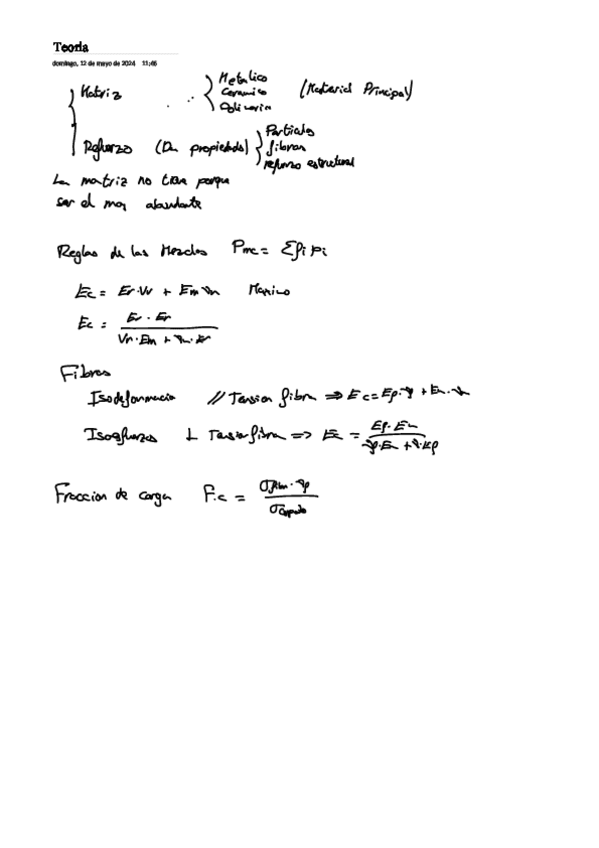 Teoría
domingo, 12 de mayo de 2024 11:46
Matriz Metalico (Material Principal)
Ceramico
Polimerica
Refuerzo (Da propiedades) Particulas
fibras
refuerzo estructural
La matriz no tiene porque
ser el mas abundante
Reglas de las Mezclas Pmc = Σfi Pi
Ec = Er·Vr + Em·Vm Maximo
Ec =
Vr·Em + Vm·Er
Fibras
Isodeformacio // Tension fibra ⇒ Ec = Ef·Vf + Em·Vm
Isoesfuerzo ⊥ Tension fibra ⇒ Ec = Ef·Em
Vf·Em + Vm·Ef
Fraccion de carga F.c = σfibra·Vf